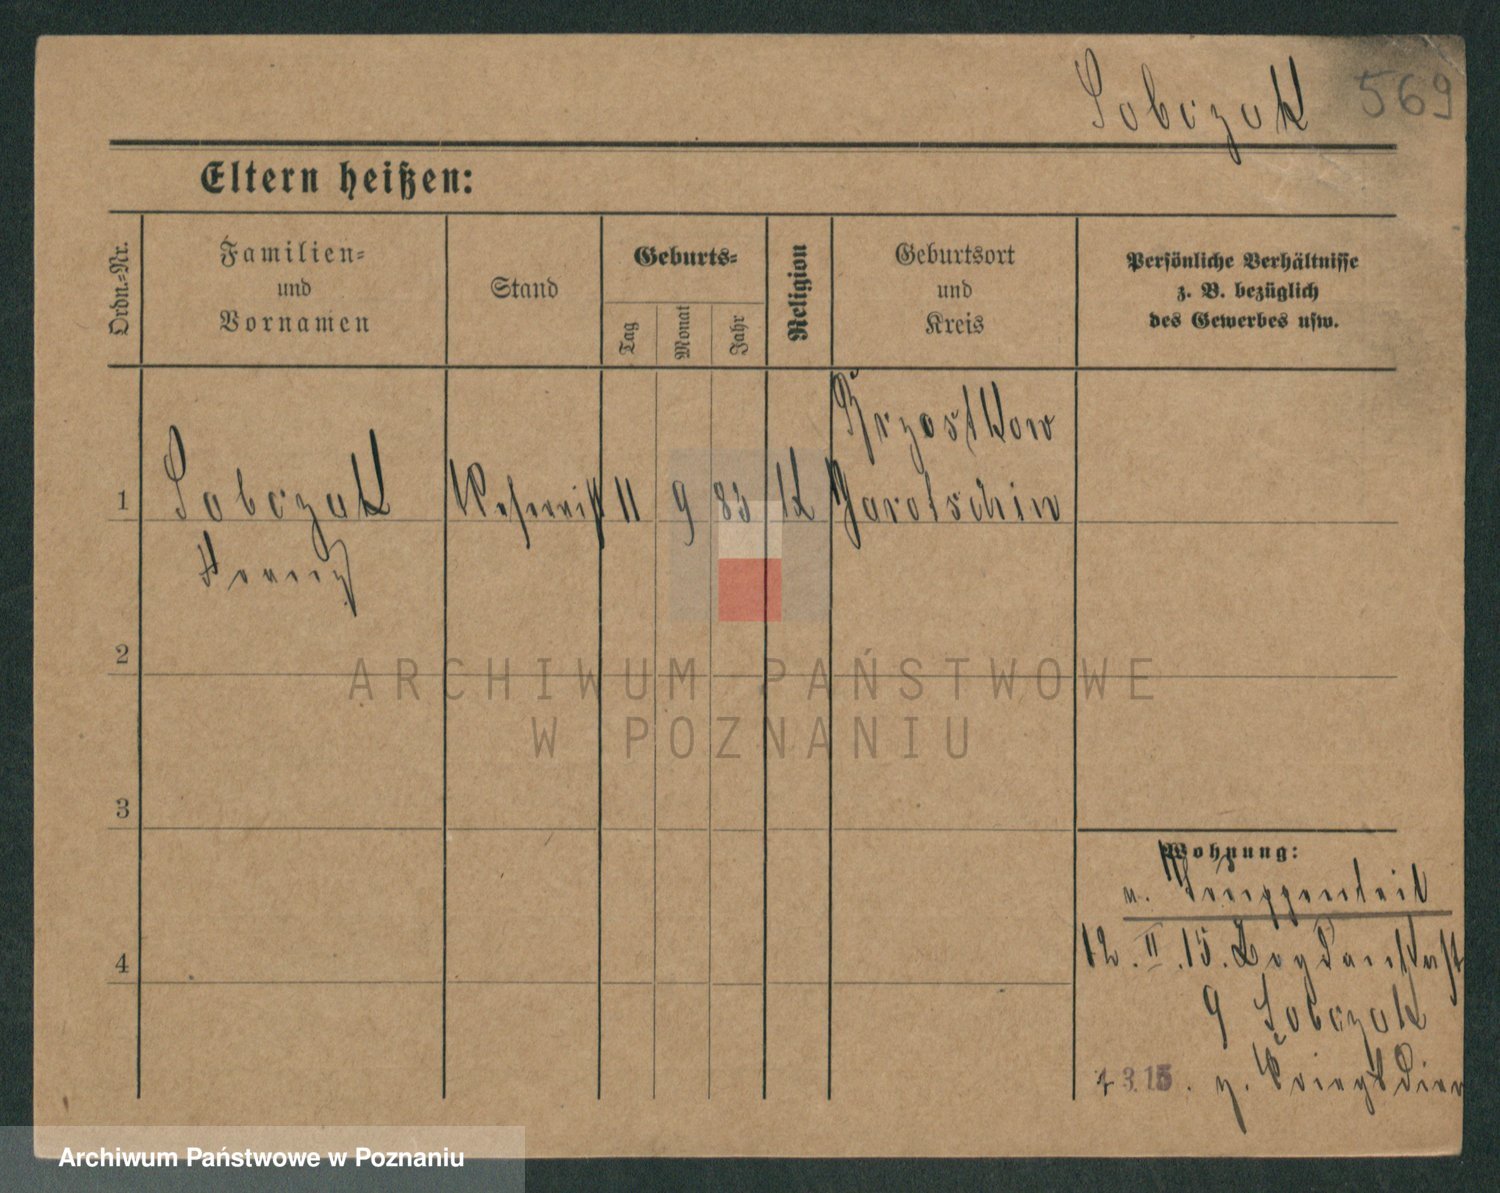 Sobczak 569
Eltern heißen:
Ordn.-Nr.
Familien-
und
Vornamen
Stand
Geburts-
Tag
Monat
Jahr
Religion
Geburtsort
und
Kreis
Persönliche Verhältnisse
z. B. bezüglich
des Gewerbes usw.
1
Sobczak
Franz
11 9 83 K
Jarotschin
2
3
4
Wohnung:
v. Truppenteil
12. II. 15.
9 Sobczak
3.15. z.
ARCHIWUM PAŃSTWOWE
W POZNANIU
Archiwum Państwowe w Poznaniu